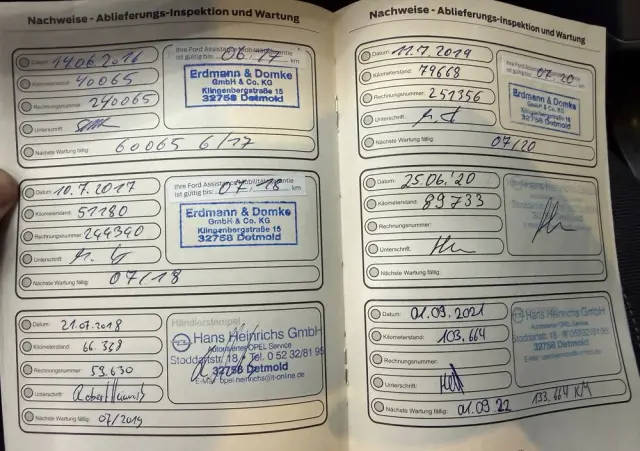 Nachweise - Ablieferungs-Inspektion und Wartung
Datum: 14.06.2016
Kilometerstand: 40065
Rechnungsnummer: 240065
Unterschrift:
Nächste Wartung fällig: 60065 6/17
Ihre Ford Assistance Mobilitätsgarantie
ist gültig bis: 06.17 km
Erdmann & Domke
GmbH & Co. KG
Klingenbergstraße 15
32758 Detmold
Datum: 10.7.2017
Kilometerstand: 51180
Rechnungsnummer: 244340
Unterschrift:
Nächste Wartung fällig: 07/18
Ihre Ford Assistance Mobilitätsgarantie
ist gültig bis: 07.18 km
Erdmann & Domke
GmbH & Co. KG
Klingenbergstraße 15
32758 Detmold
Datum: 21.07.2018
Kilometerstand: 66.348
Rechnungsnummer: 59.630
Unterschrift:
Nächste Wartung fällig: 07/2019
Händlerstempel
Hans Heinrichs GmbH
Autorisierter OPEL Service
Stoddartstr. 18, Tel. 0 52 32/81 95
32758 Detmold
E-Mail: opel.heinrichs@t-online.de
Nachweise - Ablieferungs-Inspektion und Wartung
Datum: 11.7.2019
Kilometerstand: 79668
Rechnungsnummer: 251356
Unterschrift:
Nächste Wartung fällig: 07/20
ist gültig bis: 07.20 km
Erdmann & Domke
GmbH & Co. KG
Klingenbergstraße 15
32758 Detmold
Datum: 25.06.'20
Kilometerstand: 89733
Rechnungsnummer:
Unterschrift:
Nächste Wartung fällig:
Datum: 01.09.2021
Kilometerstand: 103.664
Rechnungsnummer:
Unterschrift:
Nächste Wartung fällig: 01.09.22 133.664 KM
Hans Heinrichs GmbH
Autorisierter OPEL Service
32758 Detmold